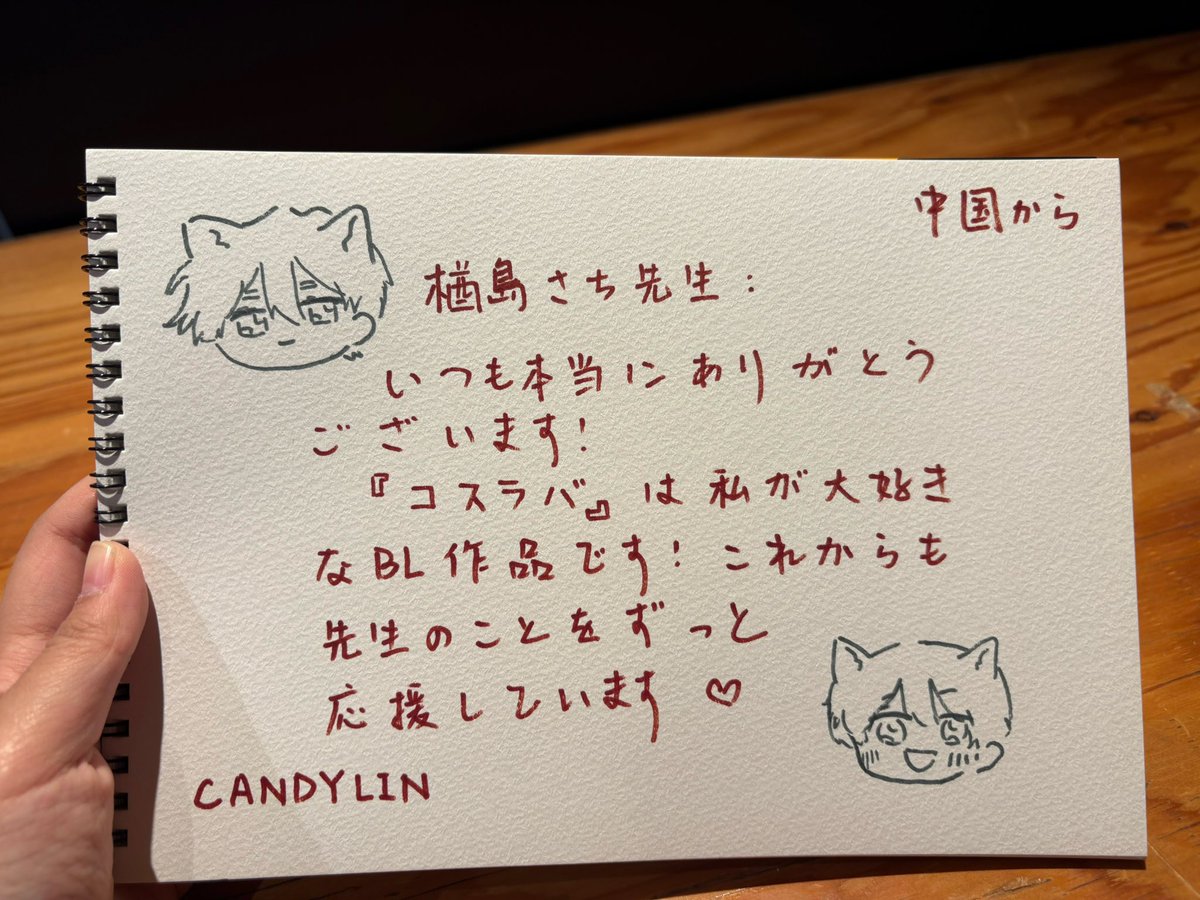 中国から
楢島さち先生：
いつも本当にありがとう
ございます！
『コスラバ』は私が大好き
なBL作品です！これからも
先生のことをずっと
応援しています♡
CANDYLIN